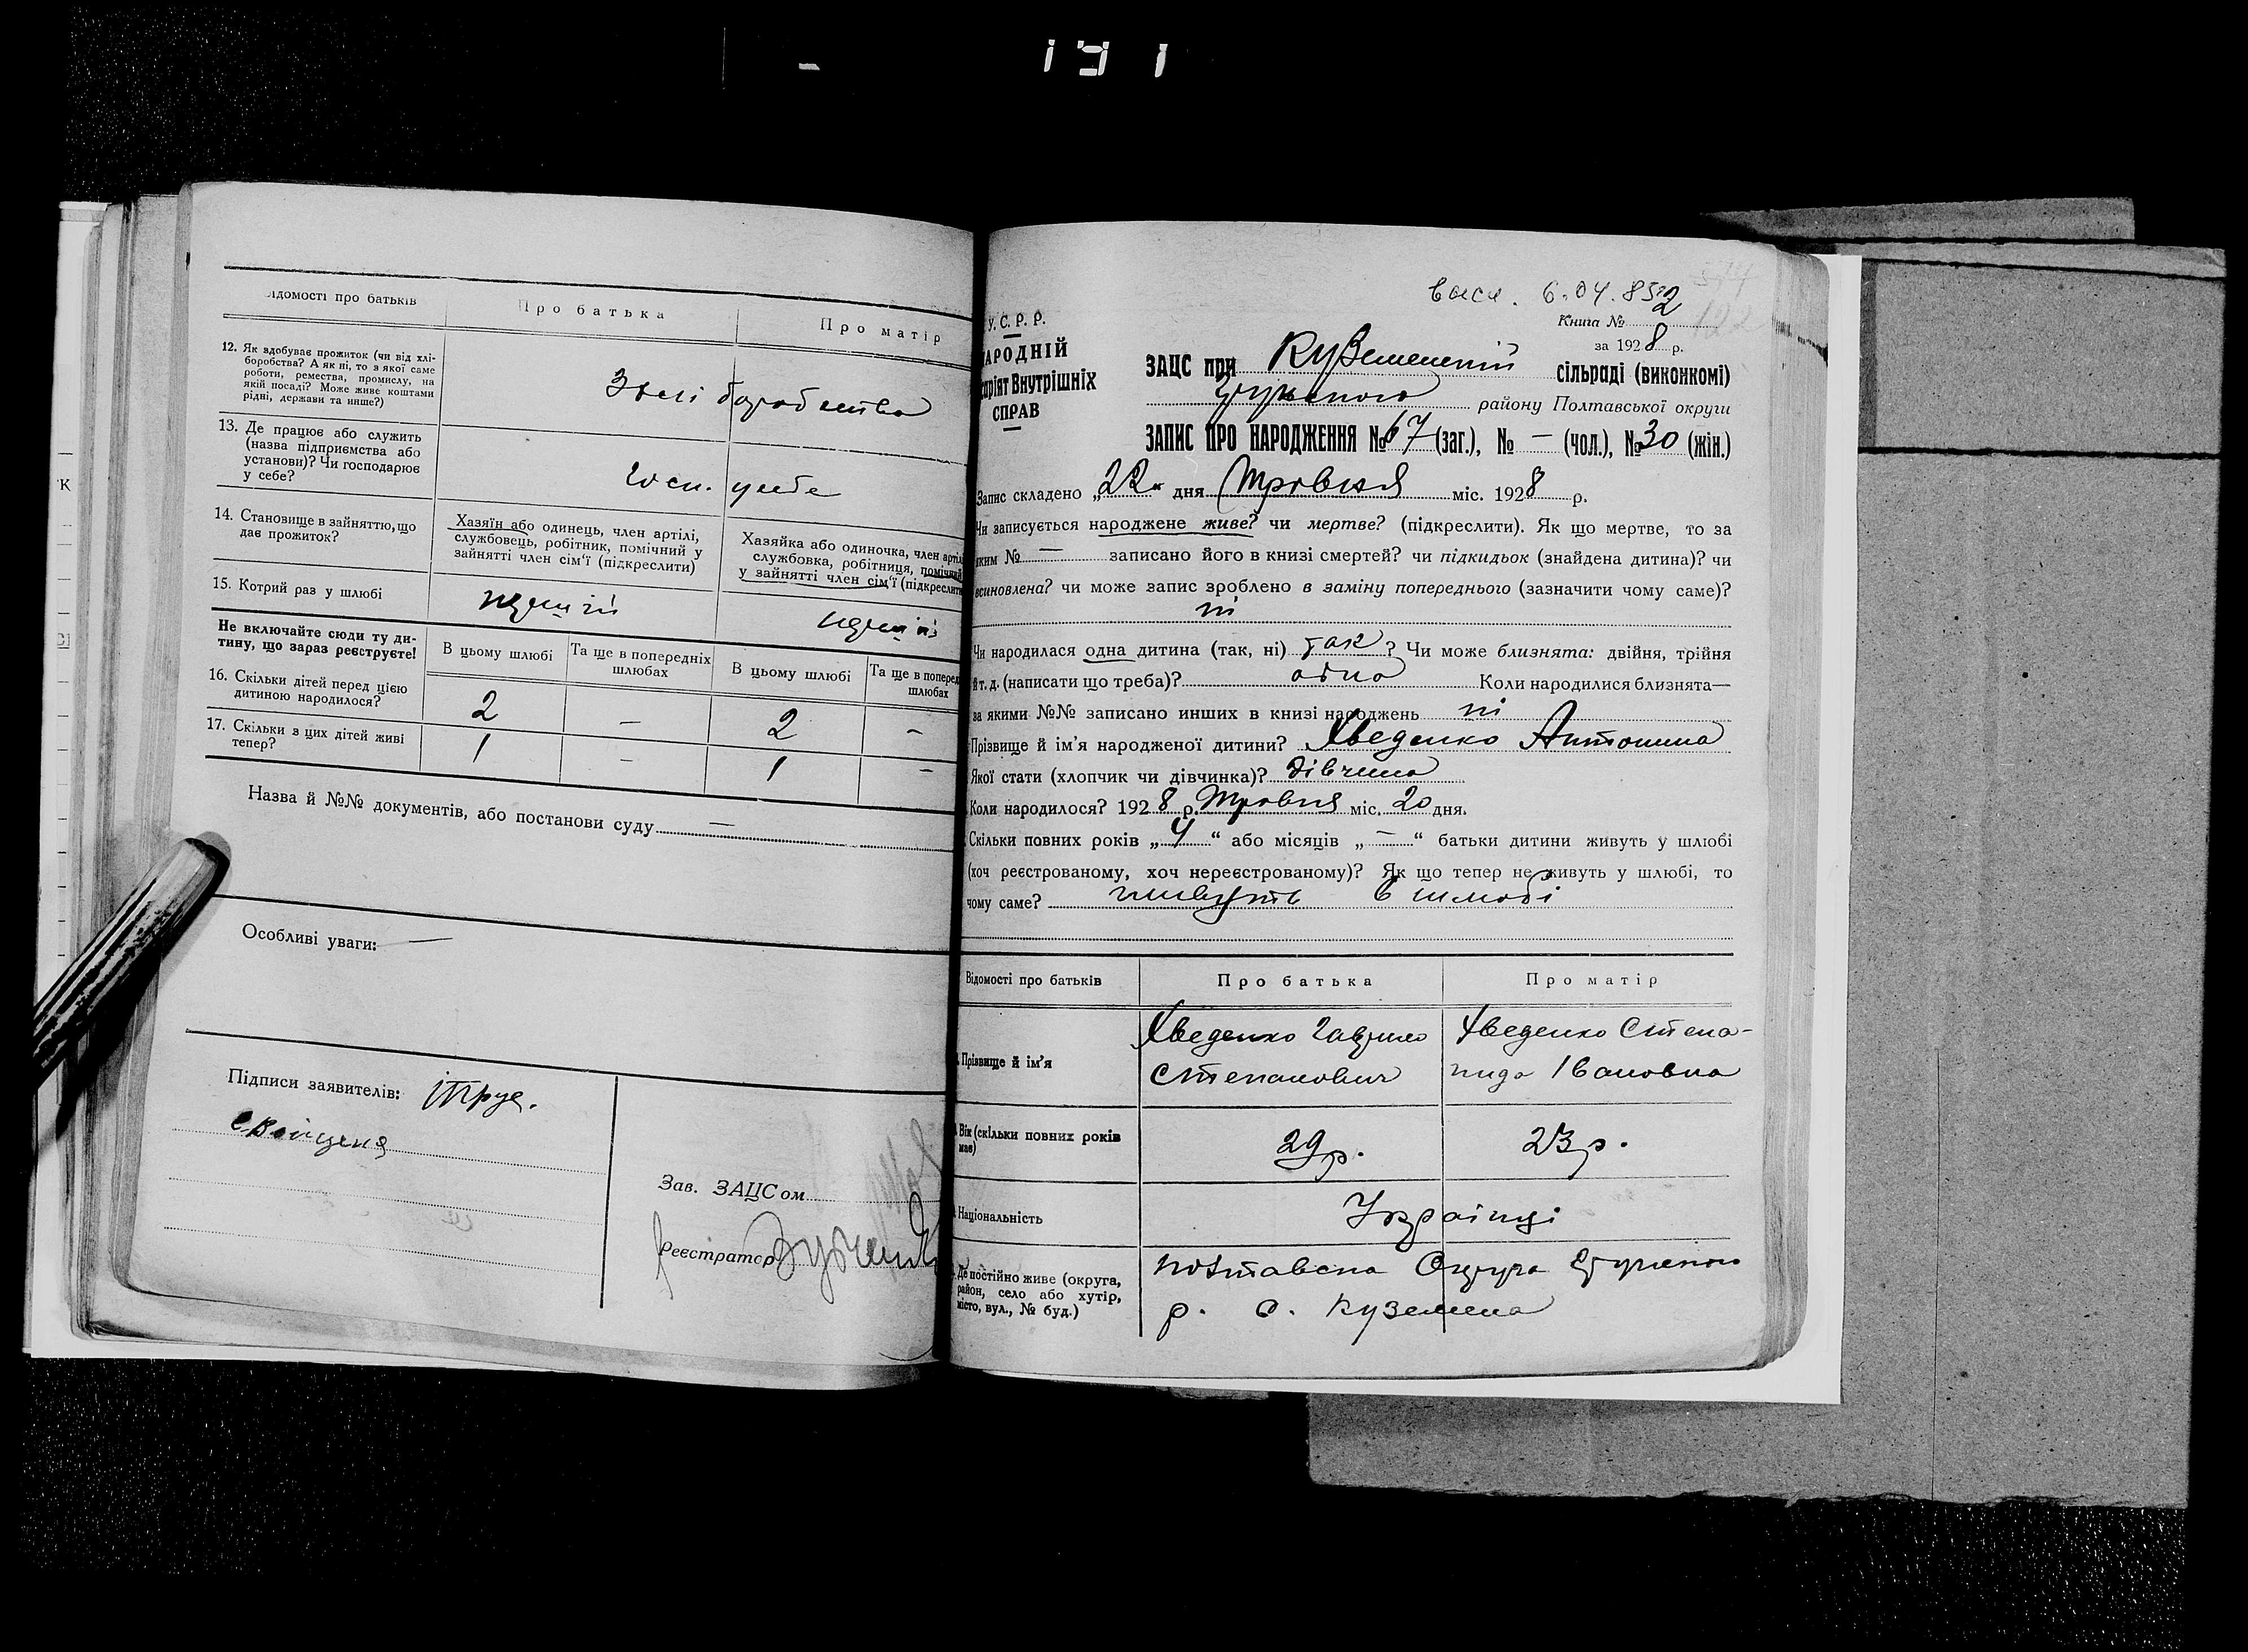 191
Відомості про батьків
Про батька
Про матір
12. Як здобуває прожиток (чи від хлі-
боробства? А як ні, то з якої саме
роботи, ремества, промислу, на
якій посаді? Може живе коштами
рідні, держави та инше?)
З хліборобства
13. Де працює або служить
(назва підприємства або
установи)? Чи господарює
у себе?
Госп. у себе
14. Становище в зайняттю, що
дає прожиток?
Хазяїн або одинець, член артілі,
службовець, робітник, помічний у
зайнятті член сім'ї (підкреслити)
Хазяйка або одиночка, член артілі
службовка, робітниця, помічний
у зайнятті член сім'ї (підкреслити
15. Котрий раз у шлюбі
перший
перший
Не включайте сюди ту ди-
тину, що зараз реєструєте!
В цьому шлюбі
Та ще в попередніх
шлюбах
В цьому шлюбі
Та ще в поперед
шлюбах
16. Скільки дітей перед цією
дитиною народилося?
2 — 2 —
17. Скільки з цих дітей живі
тепер?
1 — 1 —
Назва й №№ документів, або постанови суду —
Особливі уваги: —
Підписи заявителів:
Зав. ЗАЦСом
Реєстратор
6.04.85
Книга № 2
за 1928 р.
У. С. Р. Р.
НАРОДНІЙ
Внутрішніх
СПРАВ
ЗАЦС при Куземенській сільраді (виконкомі)
району Полтавської округи
ЗАПИС ПРО НАРОДЖЕННЯ № 67 (заг.), № — (чол.), № 30 (жін.)
Запис складено „22“ дня Травня міс. 1928 р.
Чи записується народжене живе? чи мертве? (підкреслити). Як що мертве, то за
яким № — записано його в книзі смертей? чи підкидьок (знайдена дитина)? чи
всиновлена? чи може запис зроблено в заміну попереднього (зазначити чому саме)?
ні
Чи народилася одна дитина (так, ні) так? Чи може близнята: двійня, трійня
й т. д. (написати що треба)? одно Коли народилися близнята—
за якими №№ записано инших в книзі народжень ні
Прізвище й ім'я народженої дитини? Хведенко Антонина
Якої стати (хлопчик чи дівчинка)? дівчина
Коли народилося? 1928 р. Травня міс. 20 дня.
Скільки повних років „4“ або місяців „—“ батьки дитини живуть у шлюбі
(хоч реєстрованому, хоч нереєстрованому)? Як що тепер не живуть у шлюбі, то
чому саме? живуть в шлюбі
Відомості про батьків
Про батька
Про матір
Прізвище й ім'я
Хведенко Гаврило
Степанович
Хведенко Степа-
нида Івановна
Вік (скільки повних років
має)
29 р.
23 р.
Національність
Українці
Де постійно живе (округа,
район, село або хутір,
місто, вул., № буд.)
Полтавська Округа
р. с. Куземена